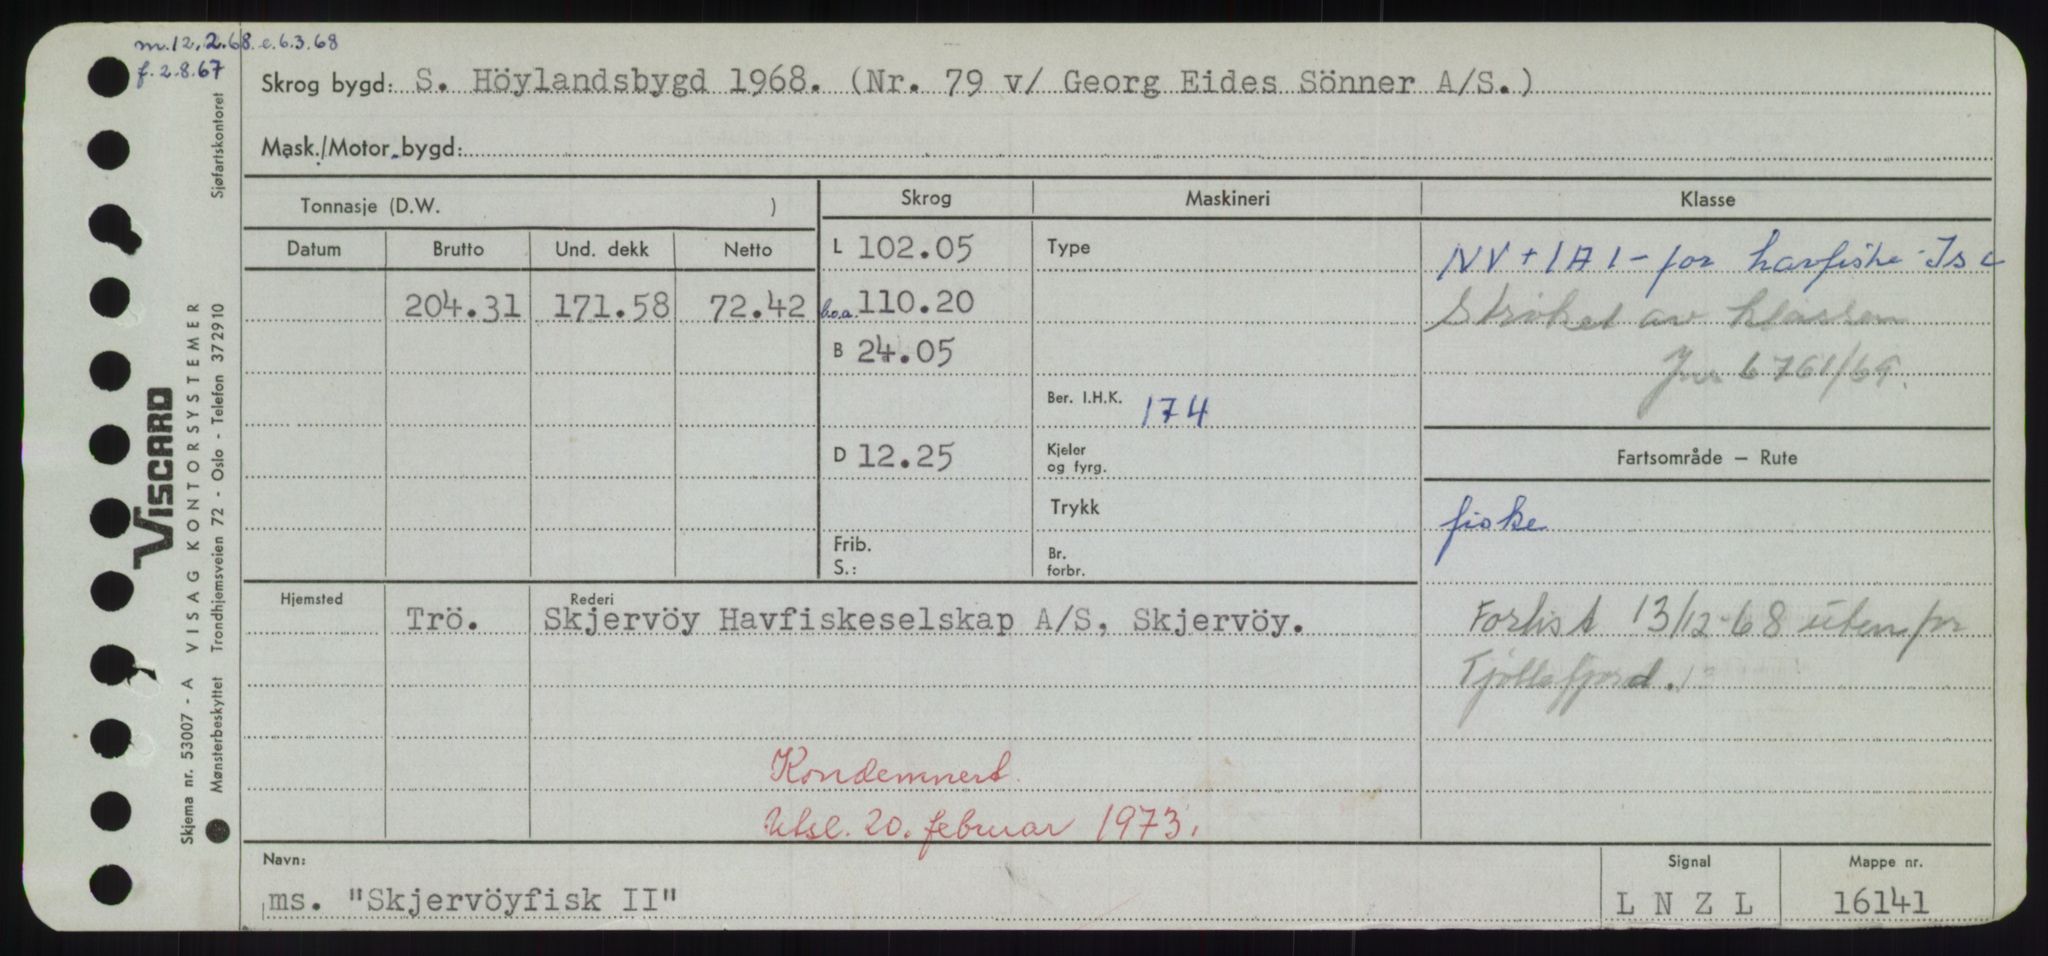 m.12.2.68.e.6.3.68
f.2.8.67
Skrog bygd: S. Höylandsbygd 1968. (Nr. 79 v/ Georg Eides Sönner A/S.)
Mask./Motor bygd:
Tonnasje (D.W. )
Skrog
Maskineri
Klasse
Datum
Brutto
Und. dekk
Netto
L 102.05
Type
NV + 1A1 - for havfiske Is C
204.31
171.58
72.42
b.o.a. 110.20
Strøket av klassen
B 24.05
Jnr 6761/69.
Ber. I.H.K. 174
D 12.25
Kjeler
og fyrg.
Fartsområde – Rute
Trykk
fiske
Frib.
S.:
Br.
forbr.
Hjemsted
Rederi
Trö.
Skjervöy Havfiskeselskap A/S, Skjervöy.
Forlist 13/12-68 utenfor
Kjøllefjord.
Kondemnert.
Utsl. 20. februar 1973.
Navn:
ms. "Skjervöyfisk II"
Signal
L N Z L
Mappe nr.
16141
Skjema nr. 53007 - A VISAG KONTORSYSTEMER Sjøfartskontoret
Mønsterbeskyttet Trondhjemsveien 72 - Oslo - Telefon 372910
VISCARD